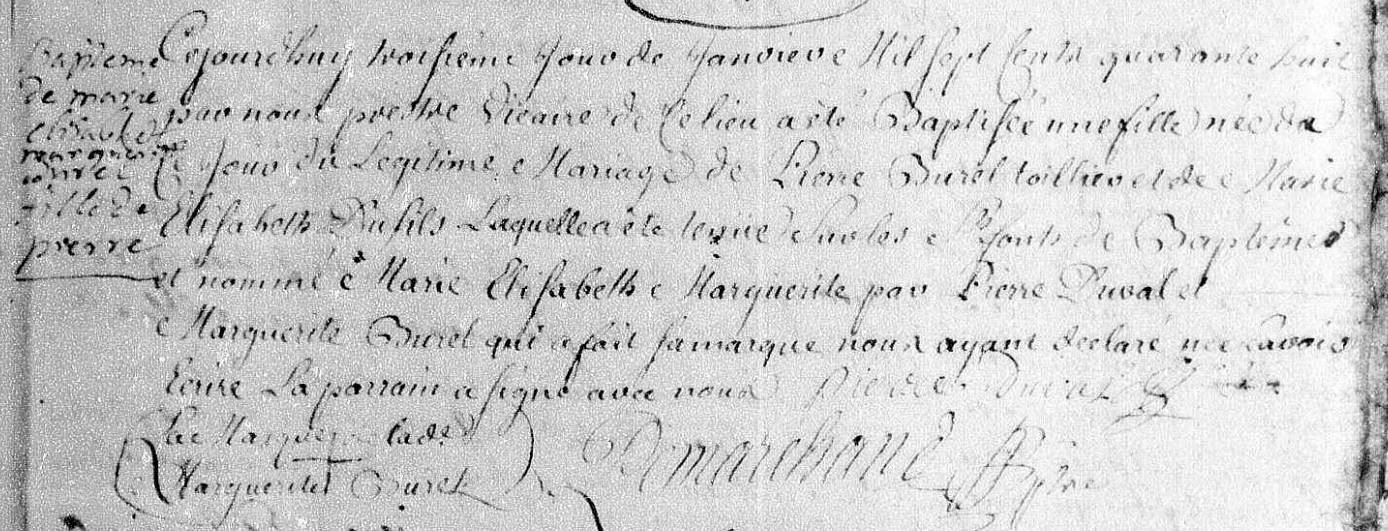 Bapteme
de marie
elisabet
marguerite
burel
fille de
pierre
Cejourd'huy troisieme Jour de Janviere Mil sept Cents quarante huit
par nous prestre Vicaire de Ce lieu a été Baptisée une fille née da
Ce Jour du Legitime Mariage de Pierre Burel toillier et de Marie
Elisabeth Dufils Laquelle a été tenüe Sur les Sts fonts de Baptêmes
et nommé Marie Elisabeth Marguerite par Pierre Duval et
Marguerite Burel qui a fait sa marque nous ayant declaré ne savoir
Ecrire La parrain a signé avec nous Pierre Duval
La Marque de ladt
Marguerite Burel
Demarchand ptre